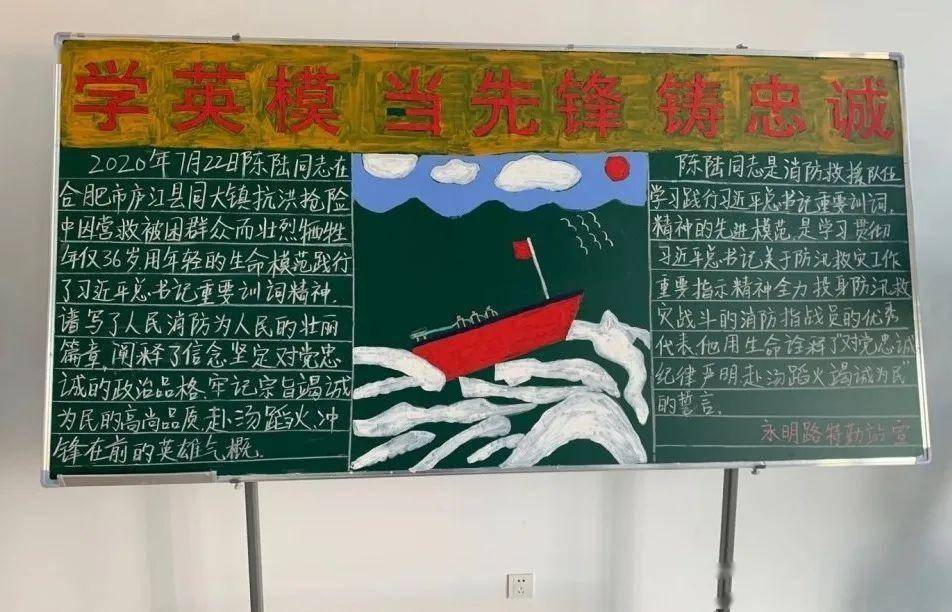 学英模 当先锋 铸忠诚
2020年7月22日陈陆同志在
合肥市庐江县同大镇抗洪抢险
中因营救被困群众而壮烈牺牲
年仅36岁用年轻的生命模范践行
了习近平总书记重要训词精神.
谱写了人民消防为人民的壮丽
篇章,阐释了信念坚定对党忠
诚的政治品格,牢记宗旨竭诚
为民的高尚品质,赴汤蹈火、冲
锋在前的英雄气概.
陈陆同志是消防救援队伍
学习践行习近平总书记重要训词,
精神的先进模范,是学习贯彻
习近平总书记关于防汛救灾工作
重要指示精神全力投身防汛救
灾战斗的消防指战员的优秀
代表.他用生命诠释了"对党忠诚
纪律严明,赴汤蹈火竭诚为民"
的誓言.
永明路特勤站宣